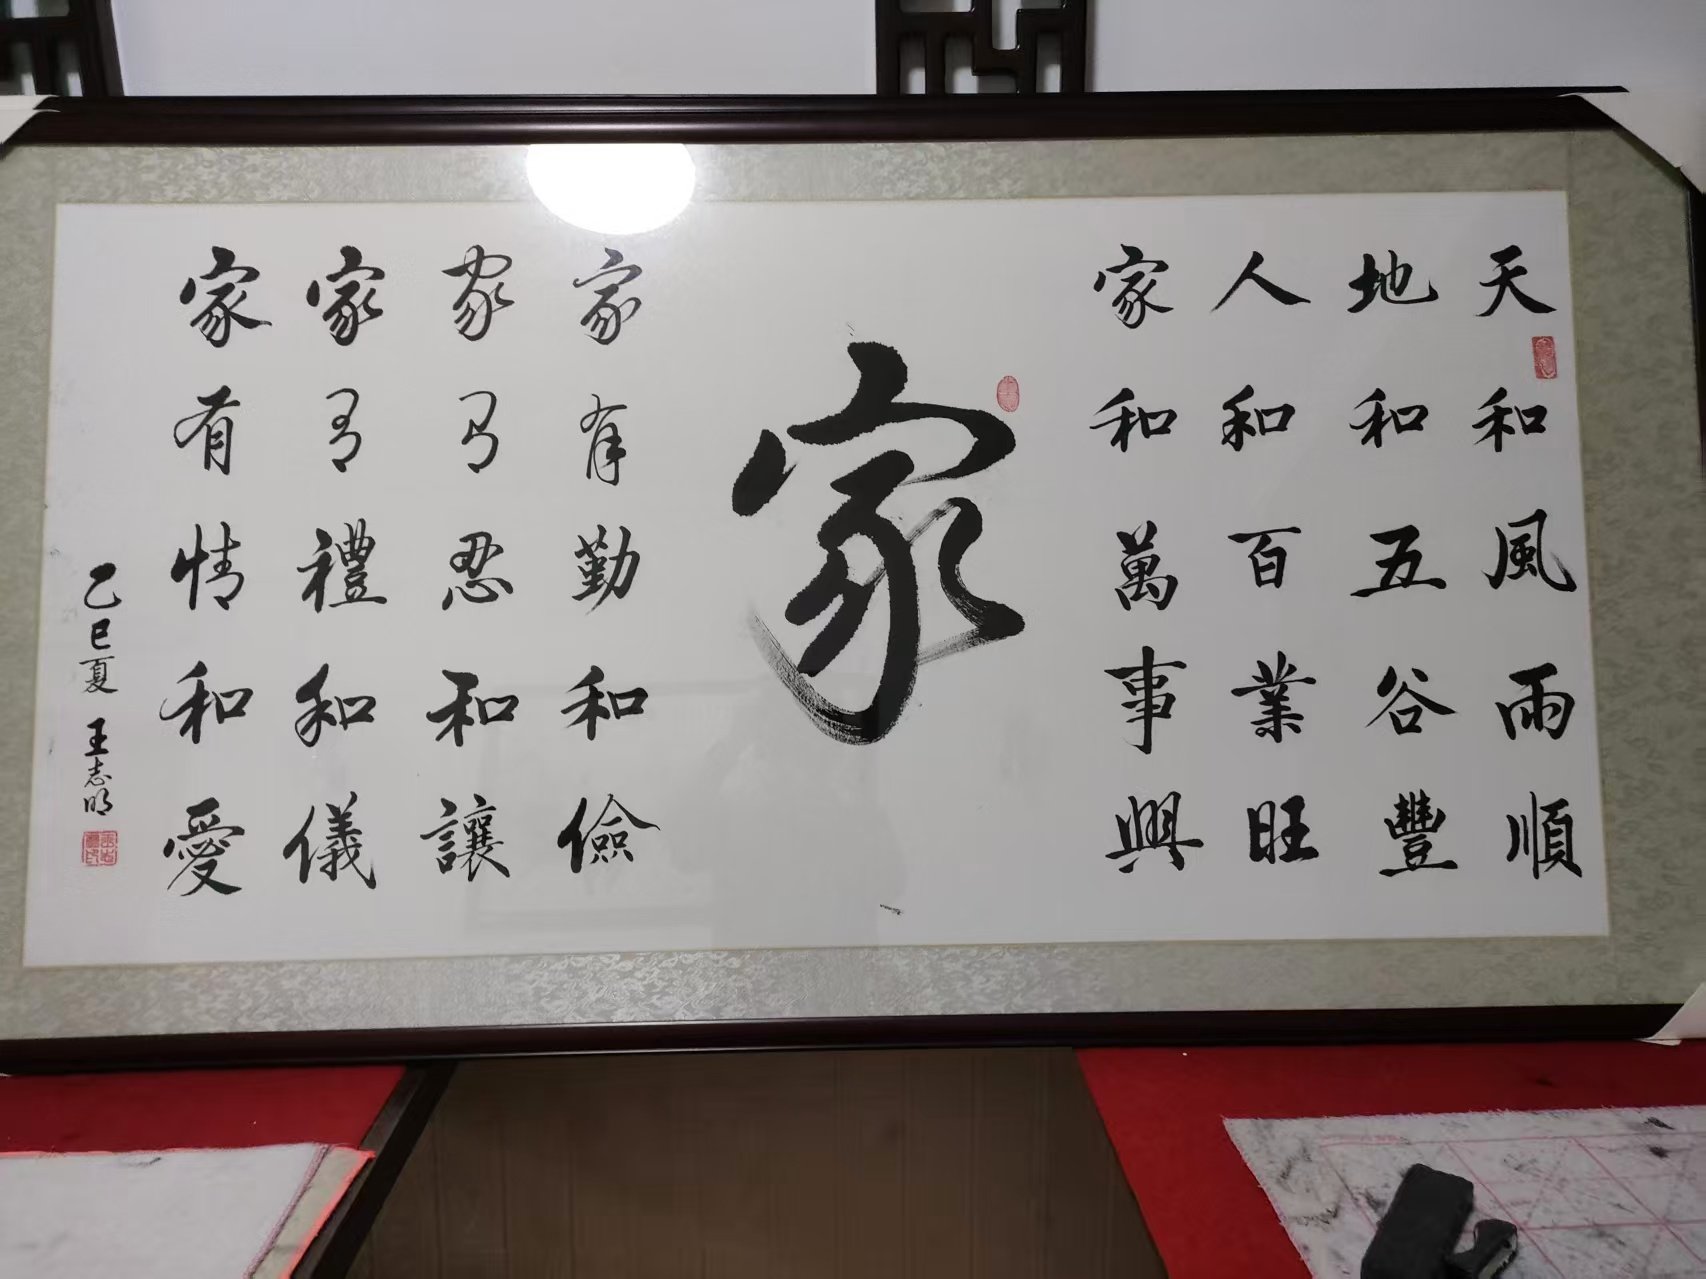 天和風雨順
地和五谷豐
人和百業旺
家和萬事興
家
家有勤和儉
家有忍和讓
家有禮和儀
家有情和愛
乙巳夏 王志明